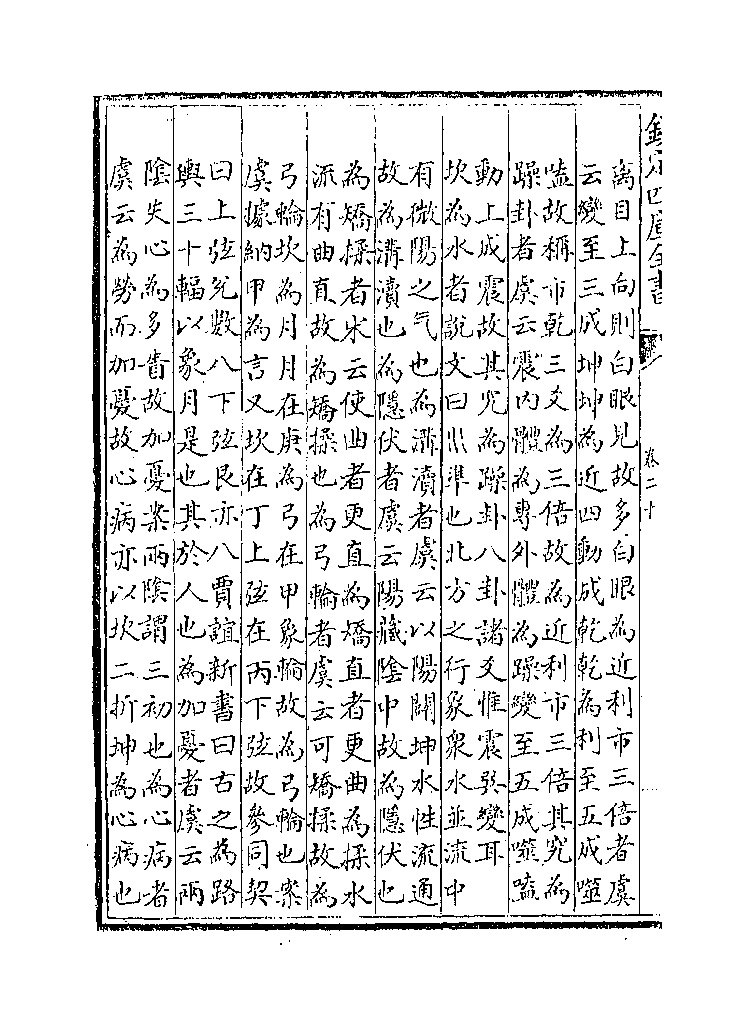 欽定四庫全書
卷二十
离目上向則白眼見故多白眼為近利市三倍者虞
云變至三成坤坤為近四動成乾乾為利至五成噬
嗑故稱市乾三爻為三倍故為近利市三倍其究為
躁卦者虞云震内體為專外體為躁變至五成噬嗑
動上成震故其究為躁卦八卦諸爻惟震巽變耳
坎為水者說文曰水準也北方之行象衆水並流中
有微陽之气也為溝瀆者虞云以陽闢坤水性流通
故為溝瀆也為隱伏者虞云陽藏陰中故為隱伏也
為矯揉者宋云使曲者更直為矯直者更曲為揉水
流有曲直故為矯揉也為弓輪者虞云可矯揉故為
弓輪坎為月月在庚為弓在甲象輪故為弓輪也案
虞據納甲為言又坎在丁上弦在丙下弦故參同契
曰上弦兌數八下弦艮亦八賈誼新書曰古之為路
輿三十輻以象月是也其於人也為加憂者虞云兩
陰失心為多眚故加憂案兩陰謂三初也為心病者
虞云為勞而加憂故心病亦以坎二折坤為心病也